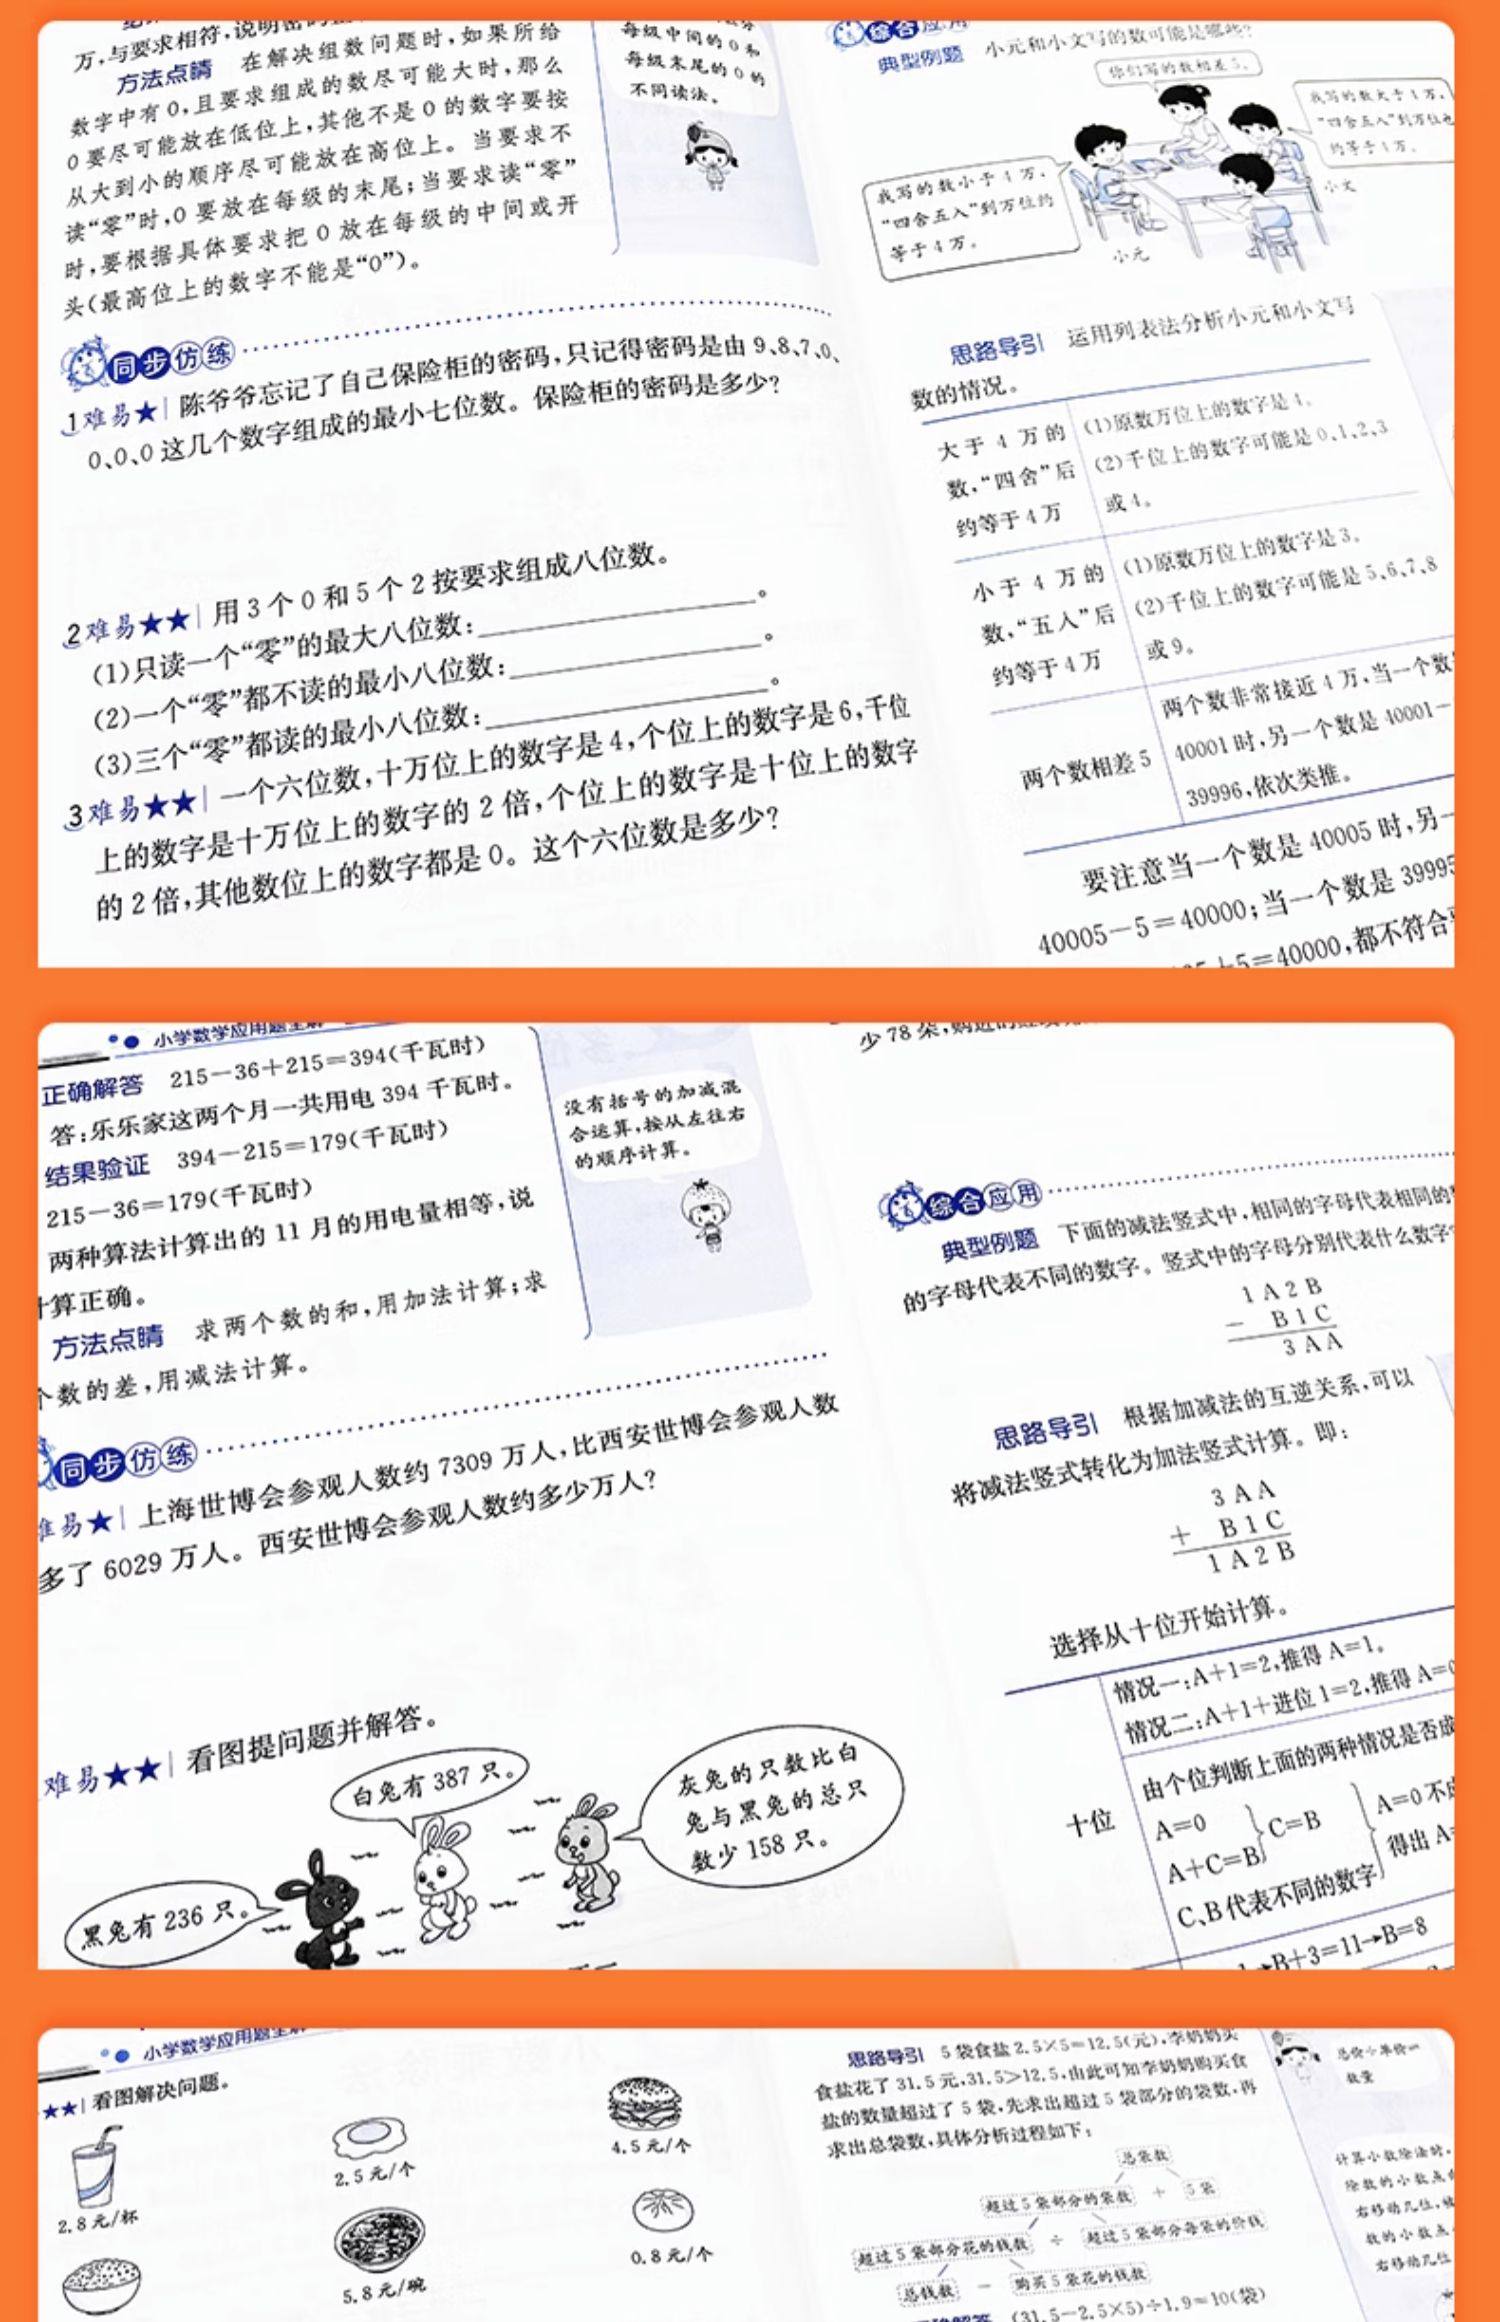 万,与要求相符,说明密
方法点睛 在解决组数问题时,如果所给
数字中有0,且要求组成的数尽可能大时,那么
0要尽可能放在低位上,其他不是0的数字要按
从大到小的顺序尽可能放在高位上。当要求不
读“零”时,0要放在每级的末尾;当要求读“零”
时,要根据具体要求把0放在每级的中间或开
头(最高位上的数字不能是“0”)。
每级中间的0和
每级末尾的0的
不同读法。
同步仿练
1难易★|陈爷爷忘记了自己保险柜的密码,只记得密码是由9、8、7、0、
0、0、0这几个数字组成的最小七位数。保险柜的密码是多少?
2难易★★|用3个0和5个2按要求组成八位数。
(1)只读一个“零”的最大八位数:。
(2)一个“零”都不读的最小八位数:。
(3)三个“零”都读的最小八位数:。
3难易★★|一个六位数,十万位上的数字是4,个位上的数字是6,千位
上的数字是十万位上的数字的2倍,个位上的数字是十位上的数字
的2倍,其他数位上的数字都是0。这个六位数是多少?
综合应用
典型例题 小元和小文写的数可能是哪些?
你们写的数相差5。
我写的数大于4万,
“四舍五入”到万位也
约等于4万。
我写的数小于4万,
“四舍五入”到万位约
等于4万。
小元
小文
思路导引 运用列表法分析小元和小文写
数的情况。
大于4万的
数,“四舍”后
约等于4万
(1)原数万位上的数字是4。
(2)千位上的数字可能是0、1、2、3
或4。
小于4万的
数,“五入”后
约等于4万
(1)原数万位上的数字是3。
(2)千位上的数字可能是5、6、7、8
或9。
两个数相差5
两个数非常接近4万,当一个数
40001时,另一个数是40001-
39996,依次类推。
要注意当一个数是40005时,另一
40005-5=40000;当一个数是39995
+5=40000,都不符合
小学数学应用题全解
正确解答 215-36+215=394(千瓦时)
答:乐乐家这两个月一共用电394千瓦时。
结果验证 394-215=179(千瓦时)
215-36=179(千瓦时)
两种算法计算出的11月的用电量相等,说
算正确。
方法点睛 求两个数的和,用加法计算;求
个数的差,用减法计算。
没有括号的加减混
合运算,按从左往右
的顺序计算。
同步仿练
难易★|上海世博会参观人数约7309万人,比西安世博会参观人数
多了6029万人。西安世博会参观人数约多少万人?
难易★★|看图提问题并解答。
白兔有387只。
灰兔的只数比白
兔与黑兔的总只
数少158只。
黑兔有236只。
少78朵,购进的
综合应用
典型例题 下面的减法竖式中,相同的字母代表相同的
的字母代表不同的数字。竖式中的字母分别代表什么数字
1 A 2 B
- B 1 C
3 A A
思路导引 根据加减法的互逆关系,可以
将减法竖式转化为加法竖式计算。即:
3 A A
+ B 1 C
1 A 2 B
选择从十位开始计算。
十位
情况一:A+1=2,推得A=1。
情况二:A+1+进位1=2,推得A=0
由个位判断上面的两种情况是否成
A=0
A+C=B
C=B
C、B代表不同的数字
A=0不
得出A
B+3=11→B=8
小学数学应用题全解
★★|看图解决问题。
2.8元/杯
2.5元/个
4.5元/个
5.8元/碗
0.8元/个
思路导引 5袋食盐2.5×5=12.5(元),李奶奶买
食盐花了31.5元,31.5>12.5,由此可知李奶奶购买食
盐的数量超过了5袋,先求出超过5袋部分的袋数,再
求出总袋数,具体分析过程如下:
总袋数
超过5袋部分的袋数 + 5袋
超过5袋部分花的钱数 ÷ 超过5袋部分每袋的价钱
总钱数 - 购买5袋花的钱数
(31.5-2.5×5)÷1.9=10(袋)
总价÷单价=
数量
计算小数除法时,
除数的小数点
右移动几位,被
数的小数点
右移动几位